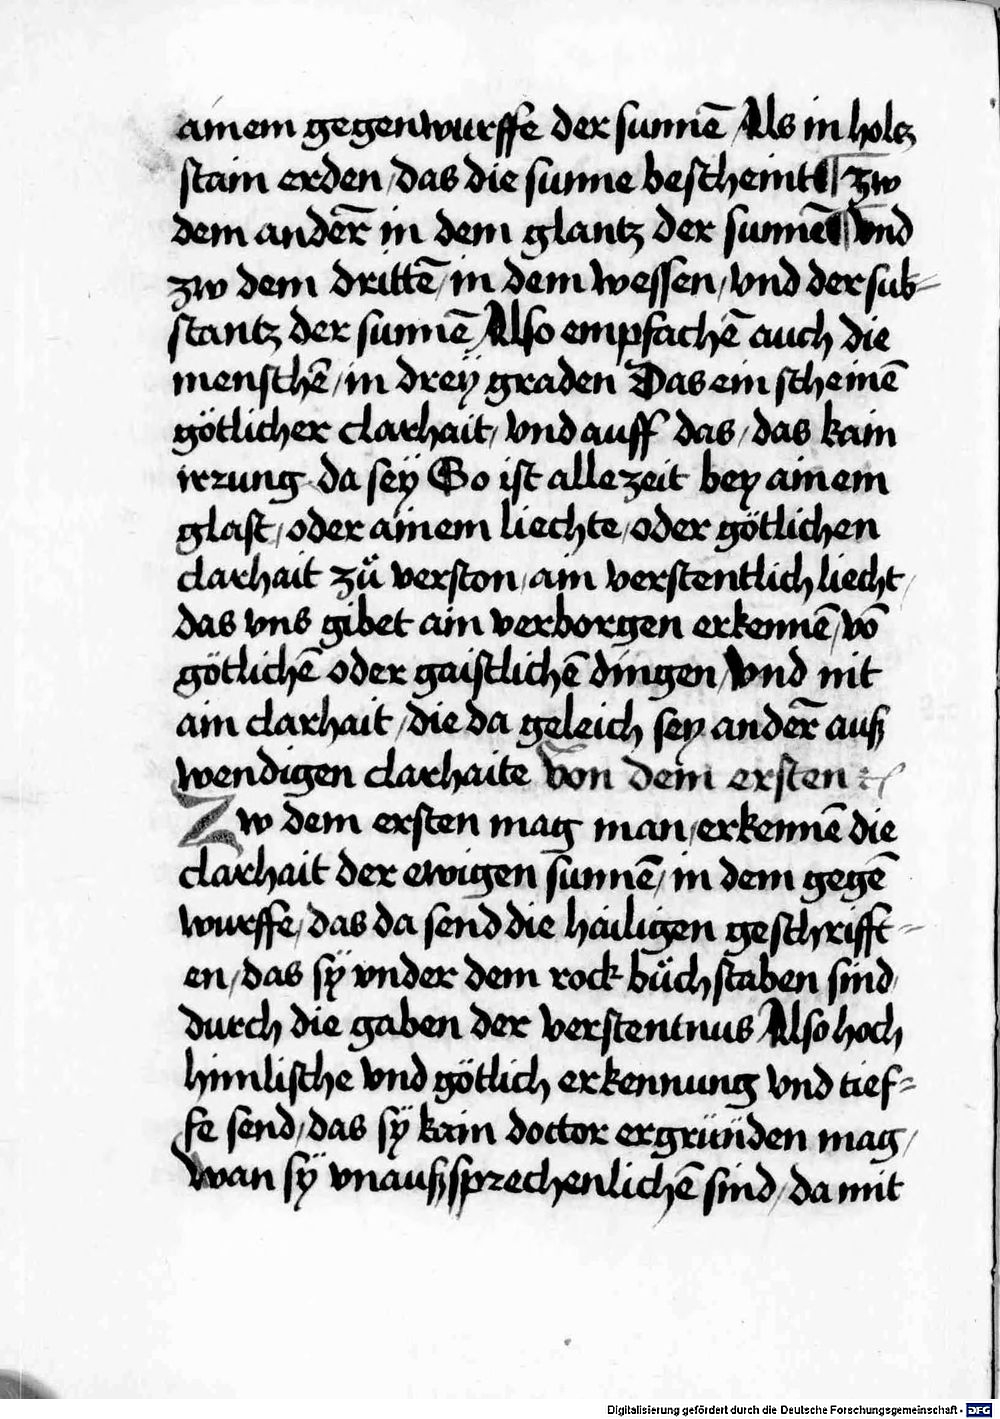 ainem gegenwurffe der sunnē Als in holtz
stain erden / das die sunne bescheint zw
dem anderͤ in dem glantz der sunnē vnd
zw dem drittē / in dem wessen / vnd der sub⸗
stantz der sunnē Also empfachē auch die
menschē / in dreÿ graden Das ein scheinē
götlicher clarhait / vnd auff das / das kain
irrung da seÿ So ist alle zeit bey ainem
glast / oder ainem liechte / oder götlichen
clarhait zů verston / ain verstentlich liecht /
das vns gibet ain verborgen erkennē / vō
götlichē oder gaistlichē dingen / vnd nit
ain clarhait / die da geleich sey ander̄ auß
wendigen clarhaite Von dem ersten
Zw dem ersten mag man / erkennē die
clarhait der ewigen sunnē / in dem gegē
wurffe / das da send die hailigen geschrifft⸗
en / das sÿ vnder dem rock bůchstaben sind /
durch die gaben der verstentnus Also hoch
himlische vnd götlich erkennung vnd tief⸗
fe send / das sÿ kain doctor ergründen mag /
wan sÿ vnaußsprechenlichē sind / da mit
Digitalisierung gefördert durch die Deutsche Forschungsgemeinschaft - DFG